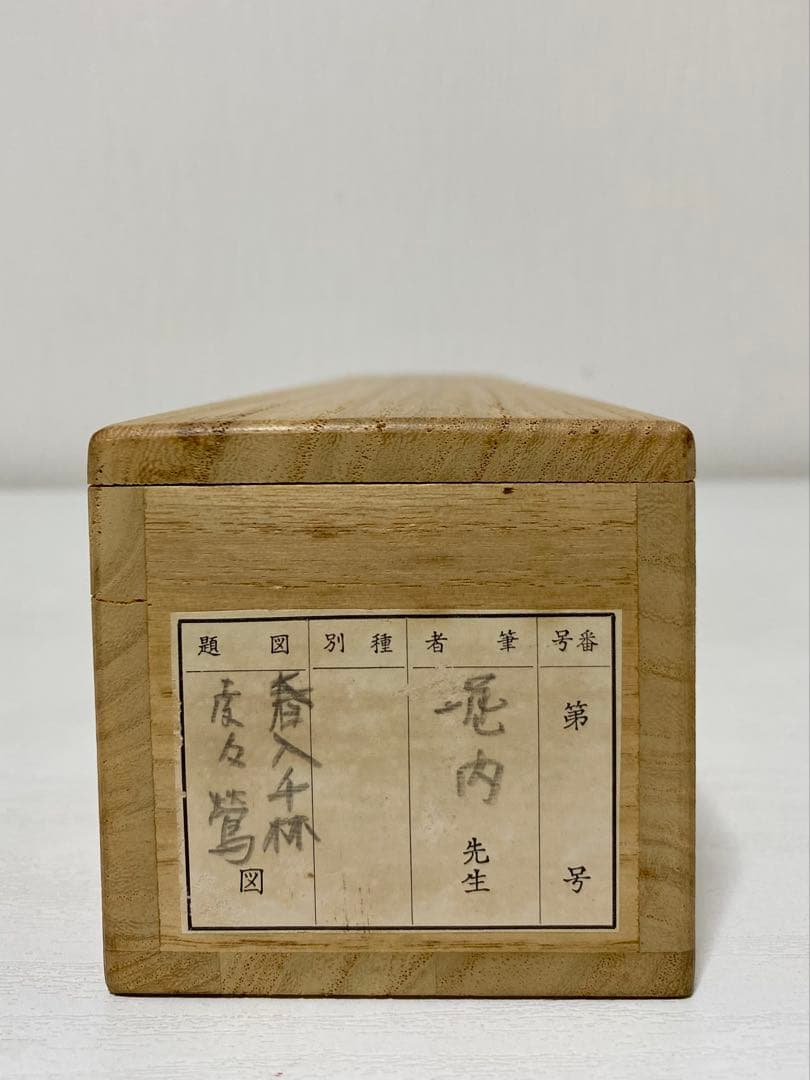 番号
第 号
筆者
堀内 先生
種別
図題
春入千林
処々鶯 図